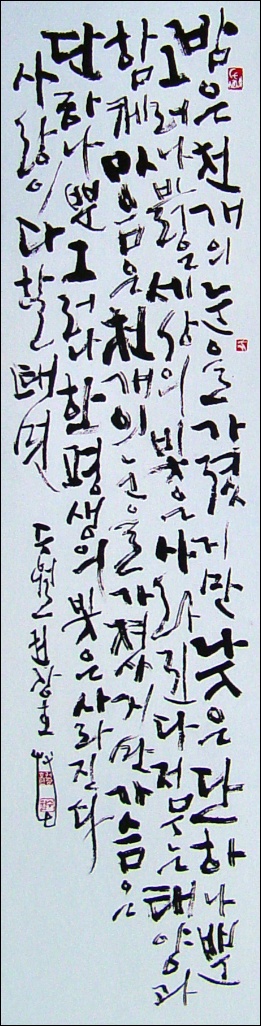 밤은 천개의 눈을 가졌지만 낮은 단 하나뿐
그러나 밝은 세상의 빛은 사라진다 저무는 태양과
함께 마음은 천개의 눈을 가졌지만 가슴은
단 하나뿐 그러나 한평생의 빛은 사라진다
사랑이 다할 때면